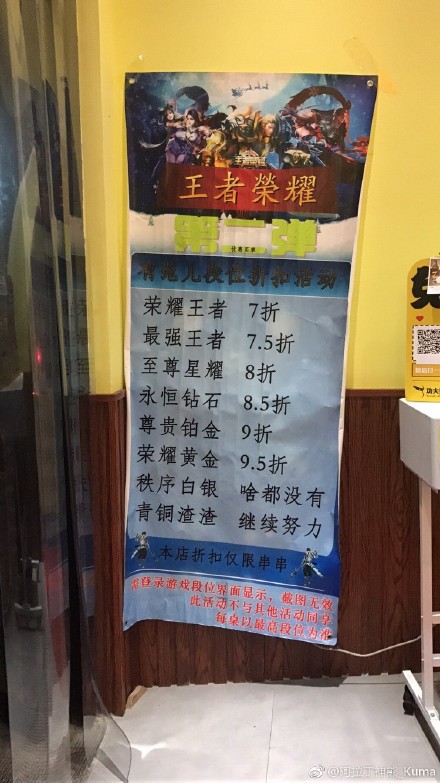 王者荣耀
王者榮耀
第二弹
优惠王来
段位折扣活动
荣耀王者 7折
最强王者 7.5折
至尊星耀 8折
永恒钻石 8.5折
尊贵铂金 9折
荣耀黄金 9.5折
秩序白银 啥都没有
青铜渣渣 继续努力
本店折扣仅限串串
需登录游戏段位界面显示，截图无效
此活动不与其他活动同享
每桌以最高段位为准
功夫
Kuma